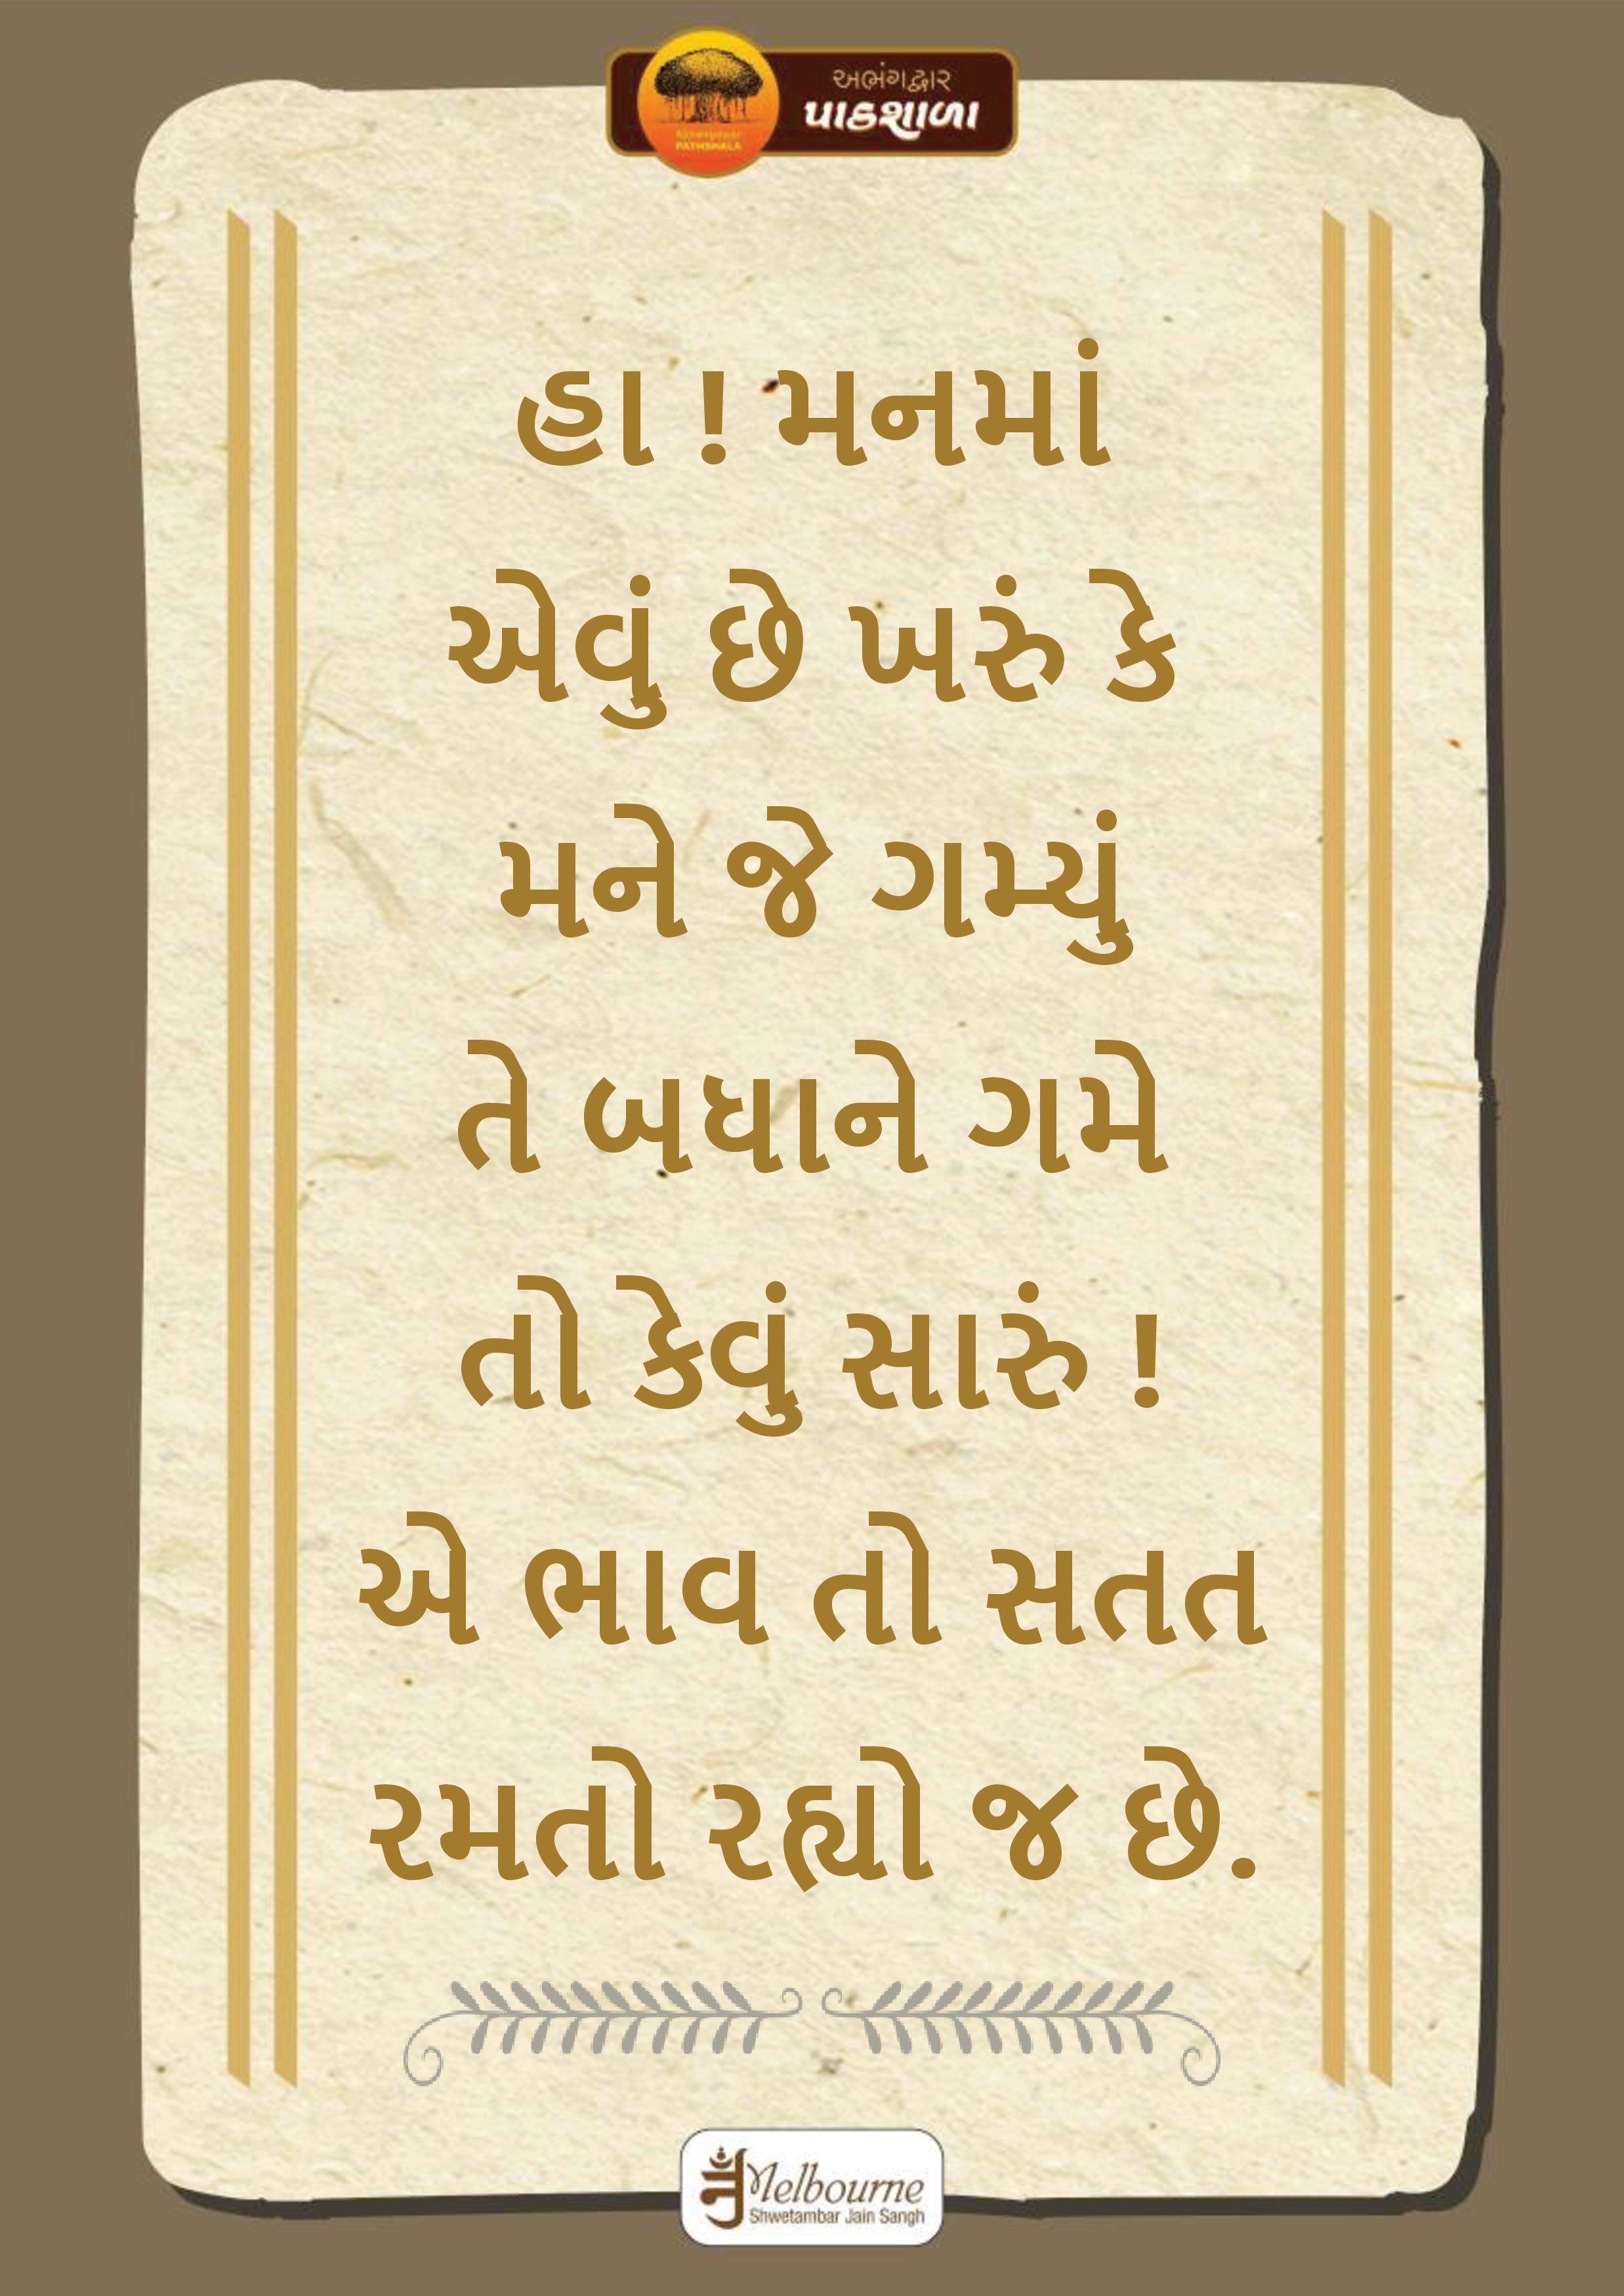 અભંગદ્વાર
પાઠશાળા
PATHSHALA
હા ! મનમાં
એવું છે ખરું કે
મને જે ગમ્યું
તે બધાને ગમે
તો કેવું સારું !
એ ભાવ તો સતત
રમતો રહ્યો જ છે.
Melbourne
Shwetambar Jain Sangh